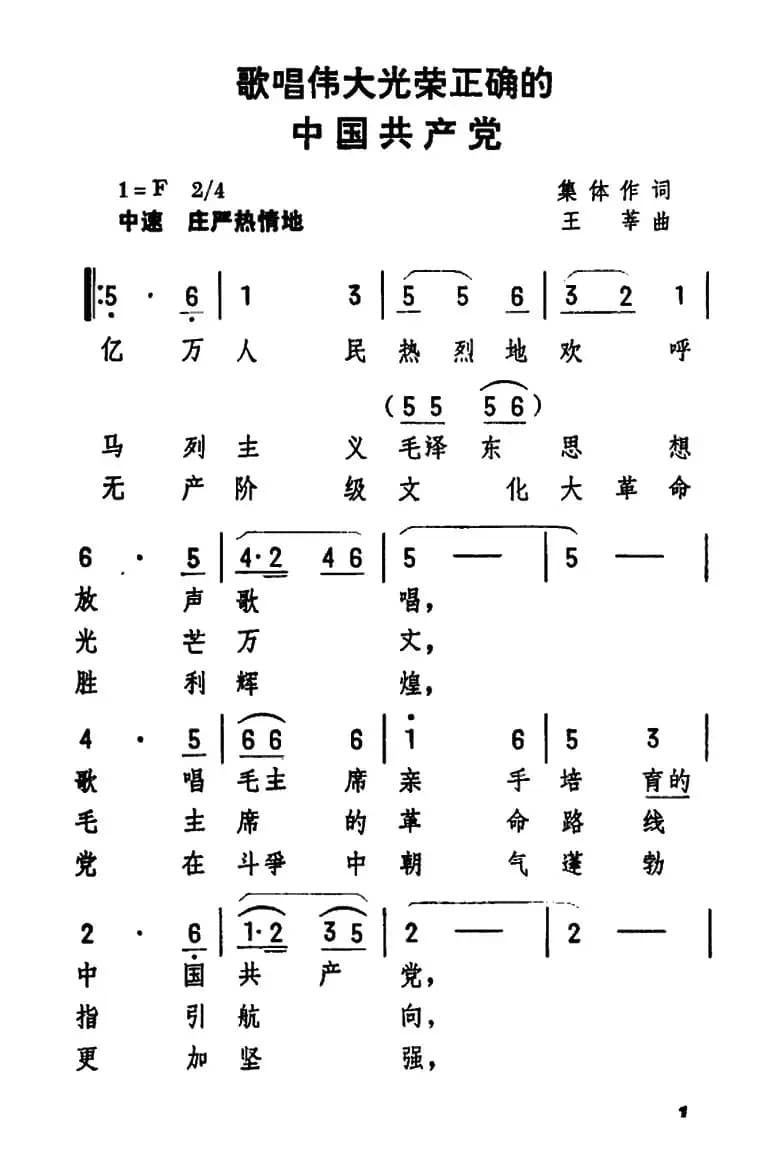 歌唱伟大光荣正确的
中国共产党
1=F 2/4 集体作词
中速 庄严热情地 王莘曲
‖:5 · 6 | 1 3 | 5 5 6 | 3 2 1 |
亿万人民热烈地欢呼
(5 5 5 6)
马列主义毛泽东思想
无产阶级文化大革命
6 · 5 | 4·2 4 6 | 5 — — | 5 — — |
放声歌唱,
光芒万丈,
胜利辉煌,
4 · 5 | 6 6 6 | 1 6 | 5 3 |
歌唱毛主席亲手培育的
毛主席的革命路线
党在斗爭中朝气蓬勃
2 · 6 | 1·2 3 5 | 2 — — | 2 — — |
中国共产党,
指引航向,
更加坚强,
1